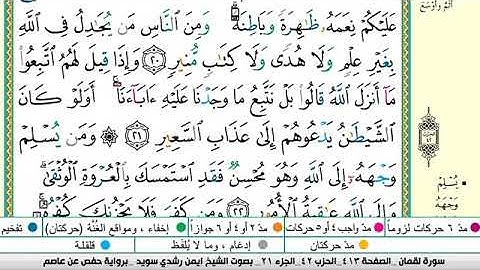 عَلَيْكُمْ نِعَمَهُۥ ظَٰهِرَةً وَبَاطِنَةً ۗ وَمِنَ ٱلنَّاسِ مَن يُجَٰدِلُ فِى ٱللَّهِ
بِغَيْرِ عِلْمٍ وَلَا هُدًى وَلَا كِتَٰبٍ مُّنِيرٍ ٢٠ وَإِذَا قِيلَ لَهُمُ ٱتَّبِعُوا۟
مَآ أَنزَلَ ٱللَّهُ قَالُوا۟ بَلْ نَتَّبِعُ مَا وَجَدْنَا عَلَيْهِ ءَابَآءَنَآ ۚ أَوَلَوْ كَانَ
ٱلشَّيْطَٰنُ يَدْعُوهُمْ إِلَىٰ عَذَابِ ٱلسَّعِيرِ ٢١ ۞ وَمَن يُسْلِمْ
وَجْهَهُۥٓ إِلَى ٱللَّهِ وَهُوَ مُحْسِنٌ فَقَدِ ٱسْتَمْسَكَ بِٱلْعُرْوَةِ ٱلْوُثْقَىٰ ۗ
وَإِلَى ٱللَّهِ عَٰقِبَةُ ٱلْأُمُورِ ٢٢ وَمَن كَفَرَ فَلَا يَحْزُنكَ كُفْرُهُۥٓ ۚ
يُسْلِمْ
وَجْهَهُ
مدّ ٦ حركات لزوماً مدّ واجب ٤ أو ٥ حركات مدّ ٢ أو ٤ أو ٦ جوازاً إخفاء، ومواقع الغُنَّة (حركتان) تفخيم
مدّ حركتان إدغام، وما لا يُلفَظ قلقلة
سورة لقمان - الصفحة ٤١٣ - الحزب ٤٢ - الجزء ٢١ - بصوت الشيخ ايمن رشدي سويد - برواية حفص عن عاصم